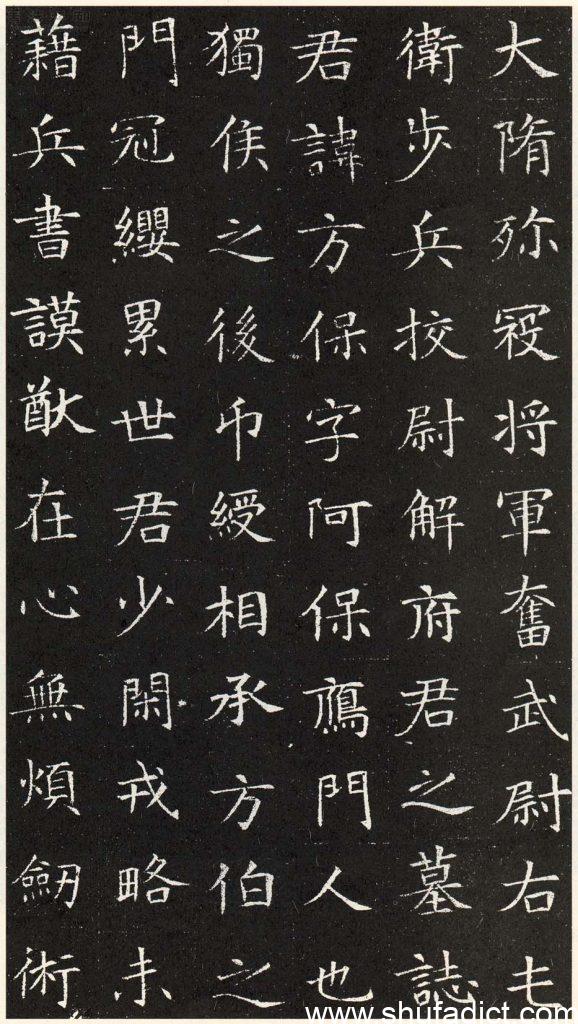 大隋殄寇将軍奮武尉右屯
衛步兵校尉解府君之墓誌
君諱方保字阿保鴈門人也
獨侯之後印綬相承方伯之
門冠纓累世君少閑戎略未
藉兵書謨猷在心無煩劔術
www.shufadict.com